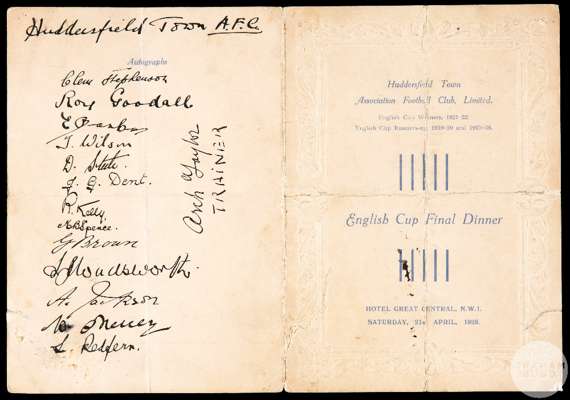 Huddersfield Town A.F.C.
Autographs
Clem Stephenson
Roy Goodall
E Barkas
T. Wilson
D. Steele
J. G. Dent.
R. Kelly.
M.B. Spence.
G Brown
S J Wadsworth.
A. Jackson
N. Mercer
L. Redfern.
Arch. Taylor
TRAINER
Huddersfield Town
Association Football Club, Limited.
English Cup Winners, 1921-22
English Cup Runners-up, 1919-20 and 1927-28.
English Cup Final Dinner
HOTEL GREAT CENTRAL, N.W.1.
SATURDAY, 21st APRIL, 1928.